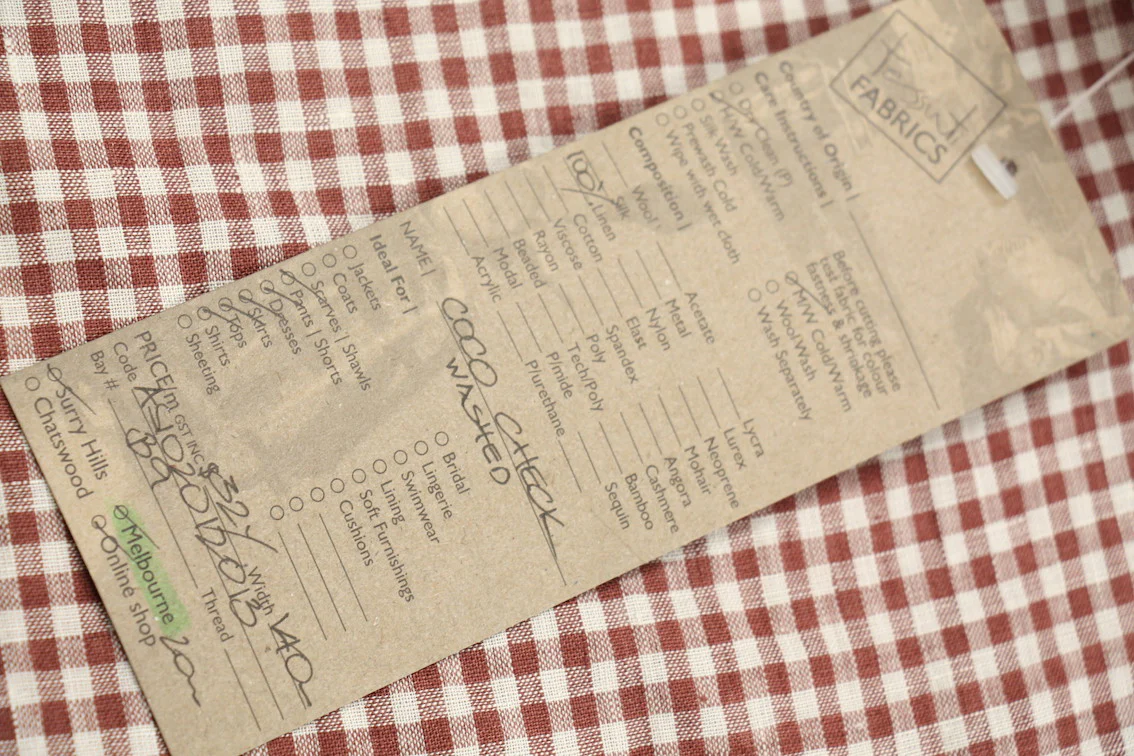 Tessuti
FABRICS
Country of Origin |
Care Instructions |
Before cutting please
test fabric for colour
fastness & shrinkage
Dry Clean (P)
M/W Cold/Warm
Silk Wash
Prewash Cold
Wipe with wet cloth
M/W Cold/Warm
Wool Wash
Wash Separately
Composition |
Wool
Silk
100% Linen
Cotton
Viscose
Rayon
Beaded
Modal
Acrylic
Acetate
Metal
Nylon
Elast
Spandex
Poly
Tech/Poly
P/mide
P/urethane
Lycra
Lurex
Neoprene
Mohair
Angora
Cashmere
Bamboo
Sequin
NAME | COCO CHECK
WASHED
Ideal For |
Jackets
Coats
Scarves | Shawls
Pants | Shorts
Dresses
Skirts
Tops
Shirts
Sheeting
Bridal
Lingerie
Swimwear
Lining
Soft Furnishings
Cushions
PRICE/m GST INC $32 Width 140
Code
Bay # B9 Thread
Surry Hills
Chatswood
Melbourne 20m
Online shop